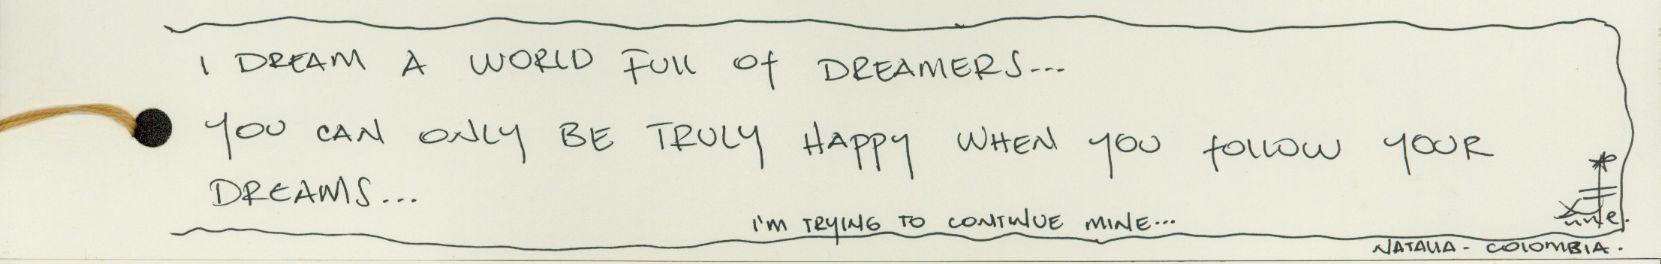 I DREAM A WORLD FULL OF DREAMERS...
YOU CAN ONLY BE TRULY HAPPY WHEN YOU FOLLOW YOUR
DREAMS...
I'M TRYING TO CONTINUE MINE...
NATALIA - COLOMBIA.